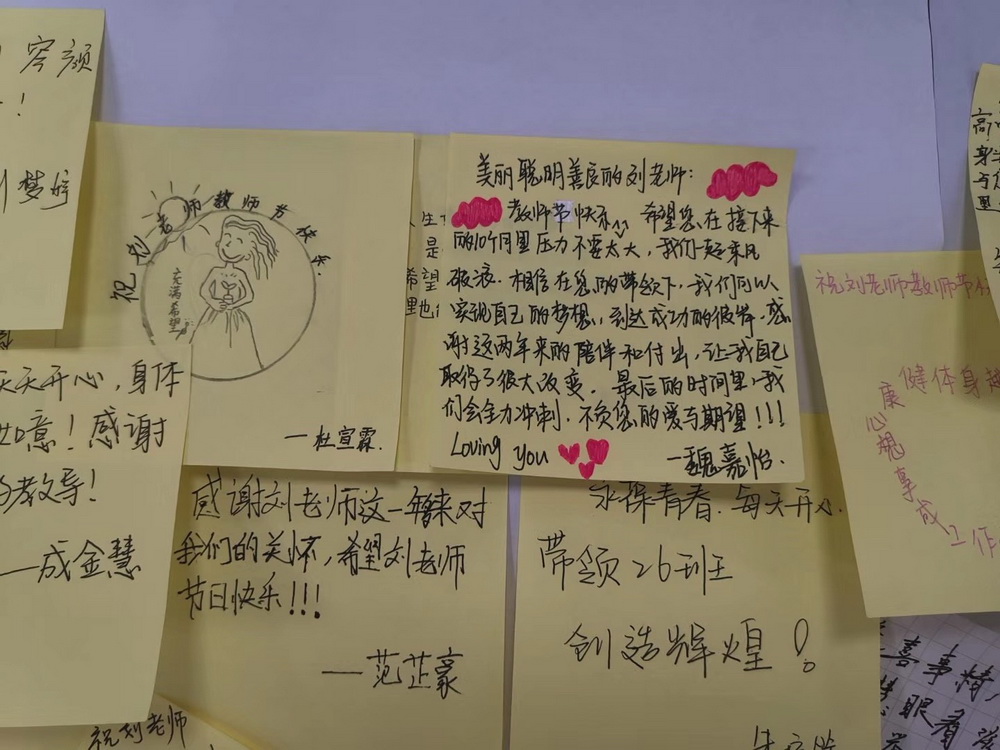 容颜
！
梦婷
祝刘老师教师节快乐.
充满希望
—杜宣霖.
生
是
希望
里
美丽聪明善良的刘老师:
教师节快乐 希望您在接下来
的10个月里压力不要太大，我们一起乘风
破浪. 相信在您的带领下，我们可以
实现自己的梦想，到达成功的彼岸. 感
谢这两年来的陪伴和付出，让我自己
取得了很大改变. 最后的时间里，我
们会全力冲刺. 不负您的爱与期望!!!
Loving you
—魏嘉怡.
高
身
与
里
祝刘老师教师节
健体身
康
心想事成
工作
天天开心，身体
如意！感谢
的教导！
—成金慧
感谢刘老师这一年来对
我们的关怀，希望刘老师
节日快乐!!!
—范芷豪
永葆青春. 每天开心.
带领26班
创造辉煌！
祝刘老师
喜事情
眼看